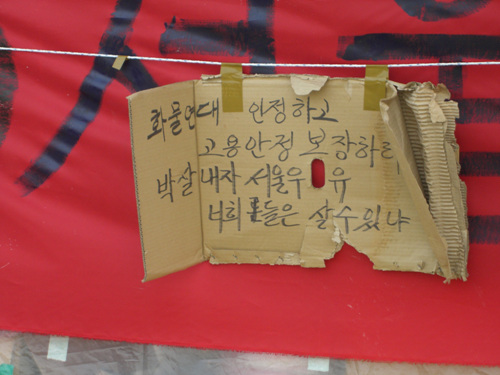 화물연대 인정하고
고용안정 보장하라
박살내자 서울우유
너희들은 살수있냐